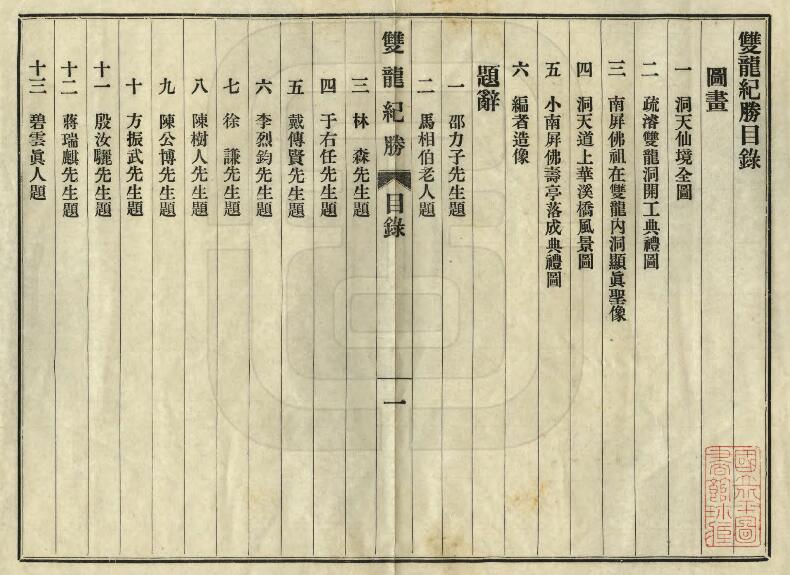 雙龍紀勝目錄
圖畫
一 洞天仙境全圖
二 疏濬雙龍洞開工典禮圖
三 南屏佛祖在雙龍內洞顯眞聖像
四 洞天道上華溪橋風景圖
五 小南屏佛壽亭落成典禮圖
六 編者造像
題辭
一 邵力子先生題
二 馬相伯老人題
雙龍紀勝 目錄 一
三 林 森先生題
四 于右任先生題
五 戴傳賢先生題
六 李烈鈞先生題
七 徐 謙先生題
八 陳樹人先生題
九 陳公博先生題
十 方振武先生題
十一 殷汝驪先生題
十二 蔣瑞麒先生題
十三 碧雲眞人題
國立北平圖
書館珍藏